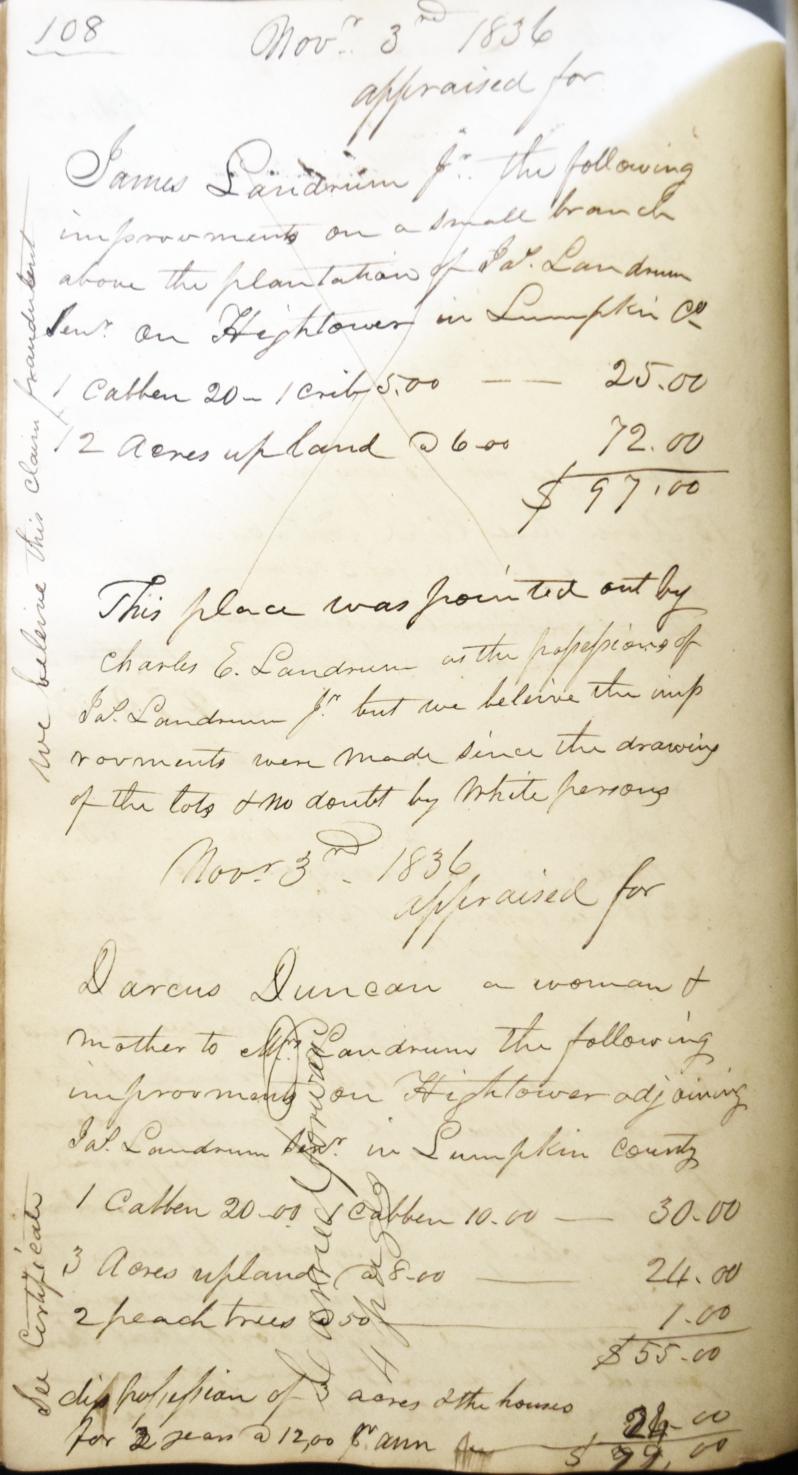 108
Novr. 3rd 1836
appraised for
James Landrum Jr. the following
improvments on a small branch
above the plantation of Jas. Landrum
Senr. on Hightower in Lumpkin Co
1 Cabben 20- 1 crib 5.00 — — 25.00
12 Acres upland @ 6-00 72.00
$ 97.00
we beleive this claim fraudulent
This place was pointed out by
Charles E. Landrum as the possessions of
Jas. Landrum Jr. but we beleive the imp
rovments were made since the drawing
of the lots & no doubt by White persons
Novr 3rd. 1836
appraised for
Darcus Duncan a woman &
mother to Mrs. Landrum the following
improvments on Hightower adjoining
Jas. Landrum Senr. in Lumpkin County
1 Cabben 20-00 1 Cabben 10.00 — 30.00
3 Acres upland @ 8-00 — 24.00
2 peach trees @ 50 — 1.00
$55-00
dispossession of 3 acres & the houses
for 2 years @ 12,00 pr ann 24-00
$ 79,00
See Certificate
Carried forward